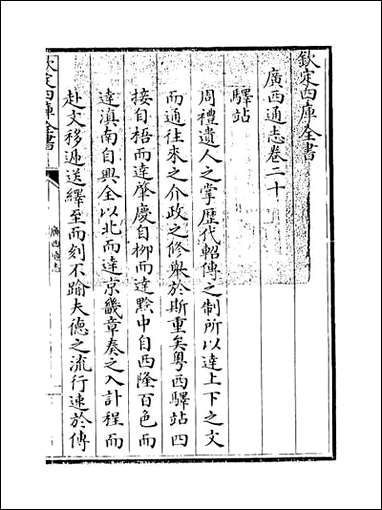 欽定四庫全書
廣西通志卷二十
驛站
周禮遺人之掌歷代軺傳之制所以達上下之文
而通往來之介政之修舉於斯重矣粤西驛站四
接自梧而達肇慶自柳而達黔中自西隆百色而
達滇南自興全以北而達京畿章奏之入計程而
赴文移遞送繹至而刻不踰夫德之流行速於傳
欽定四庫全書
廣西通志